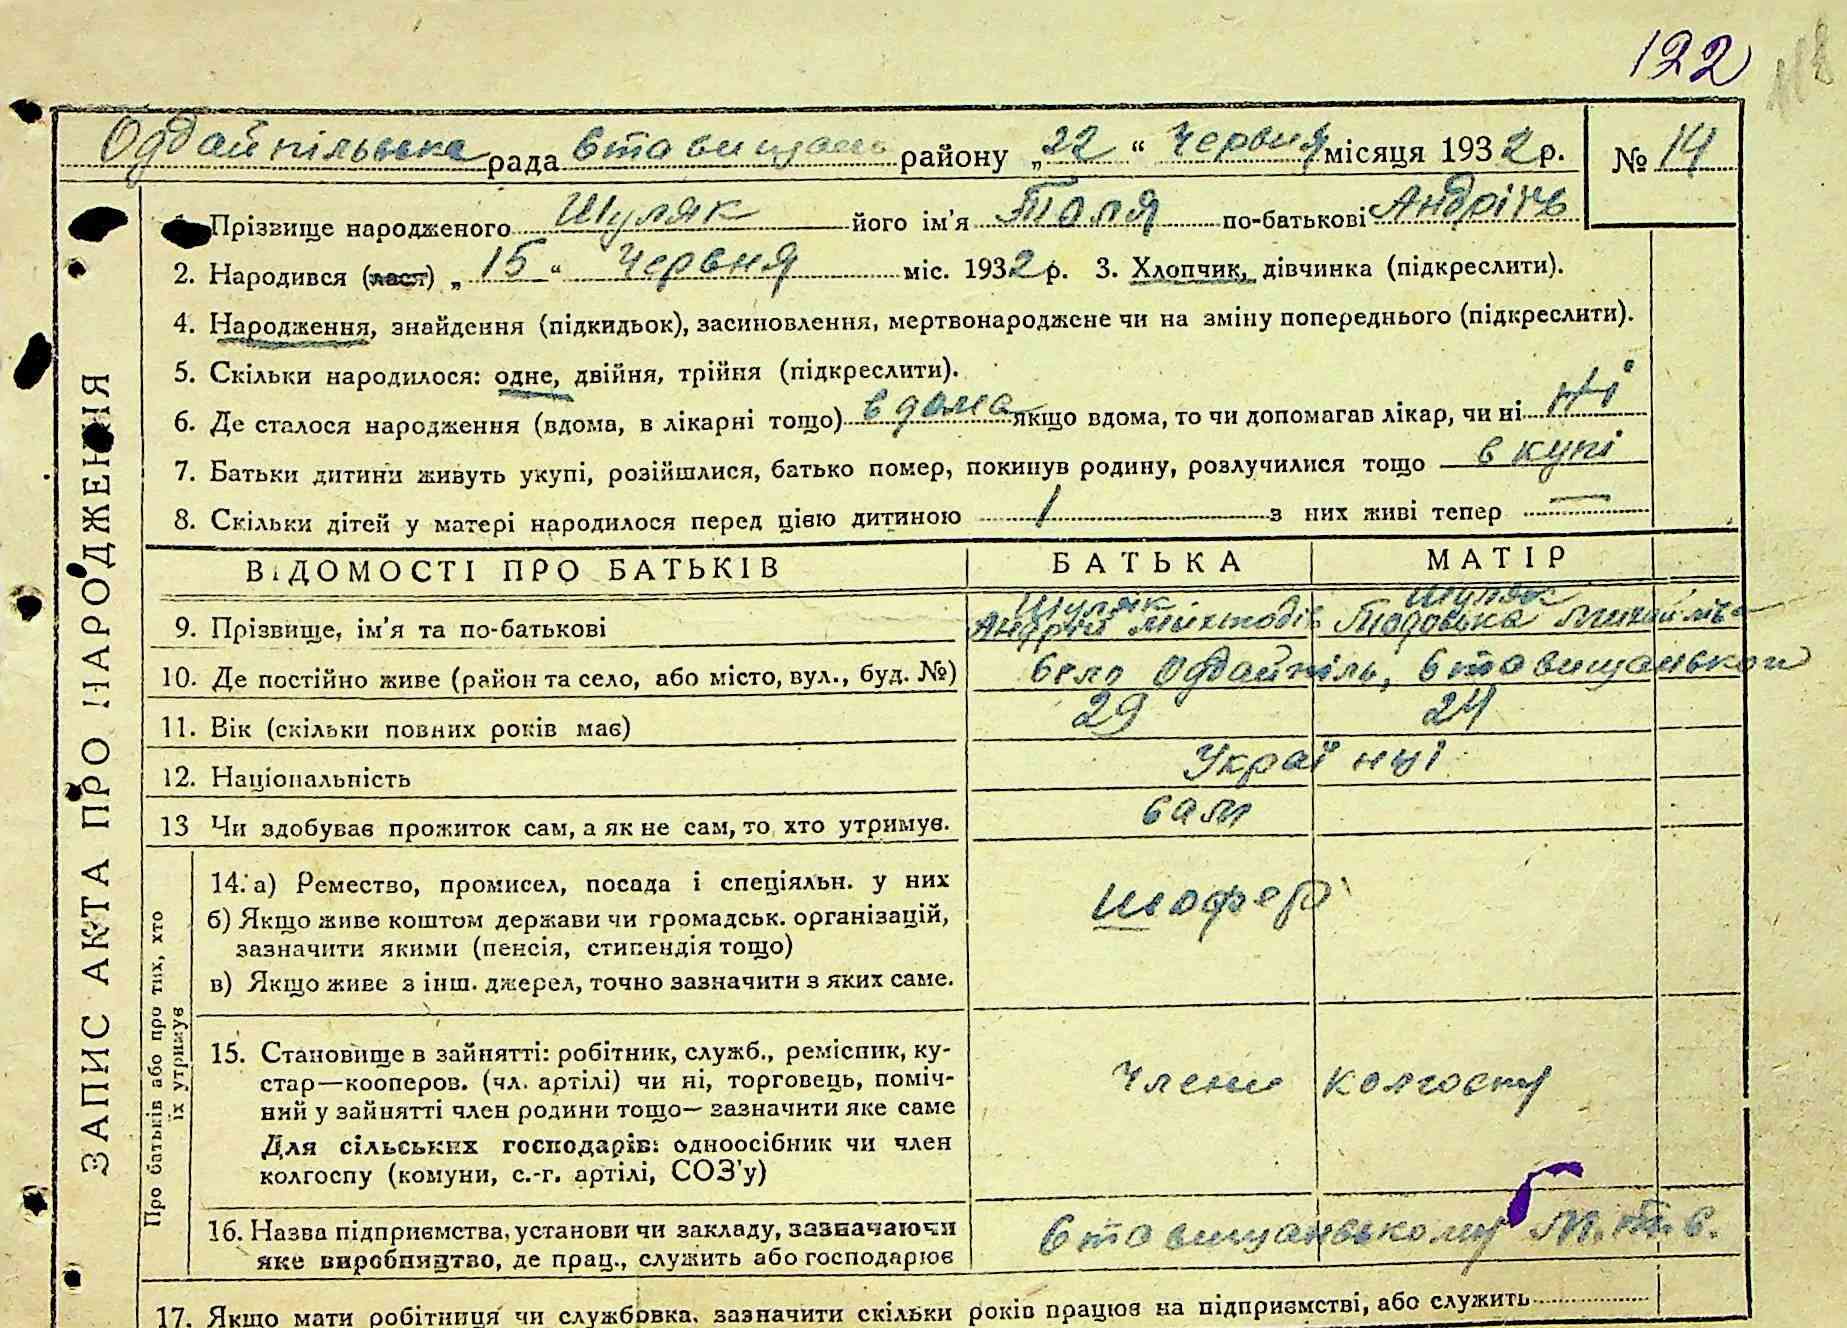 122
118
Оддайпільська рада Ставищансь району „22“ Червня місяця 1932 р. № 14
1. Прізвище народженого Шуляк його ім'я Толя по-батькові Андріїчь
2. Народився (лася) „15“ Червня міс. 1932 р. 3. Хлопчик, дівчинка (підкреслити).
4. Народження, знайдення (підкидьок), засиновлення, мертвонароджене чи на зміну попереднього (підкреслити).
5. Скільки народилося: одне, двійня, трійня (підкреслити).
6. Де сталося народження (вдома, в лікарні тощо) в дома якщо вдома, то чи допомагав лікар, чи ні ні
7. Батьки дитини живуть укупі, розійшлися, батько помер, покинув родину, розлучилися тощо в купі
8. Скільки дітей у матері народилося перед цією дитиною 1 з них живі тепер —
ВІДОМОСТІ ПРО БАТЬКІВ БАТЬКА МАТІР
Шуляк Шуляк
9. Прізвище, ім'я та по-батькові Андрій Тодоська Михайлівна
10. Де постійно живе (район та село, або місто, вул., буд. №) Село Оддайпіль, Ставищанськои
11. Вік (скільки повних років має) 29 24
12. Національність Українці
13 Чи здобуває прожиток сам, а як не сам, то хто утримує. сам
14. а) Ремество, промисел, посада і спеціяльн. у них шофер
б) Якщо живе коштом держави чи громадськ. організацій,
зазначити якими (пенсія, стипендія тощо)
в) Якщо живе з інш. джерел, точно зазначити з яких саме.
15. Становище в зайнятті: робітник, служб., ремісник, ку-
стар—кооперов. (чл. артілі) чи ні, торговець, поміч- Члени колгоспу
ний у зайнятті член родини тощо— зазначити яке саме
Для сільських господарів: одноосібник чи член
колгоспу (комуни, с.-г. артілі, СОЗ'у)
16. Назва підприємства, установи чи закладу, зазначаючи Ставищанському М.т.с.
яке виробництво, де прац., служить або господарює
17. Якщо мати робітниця чи службовка, зазначити скільки років працює на підприємстві, або служить
ЗАПИС АКТА ПРО НАРОДЖЕННЯ
Про батьків або про тих, хто
їх утримує